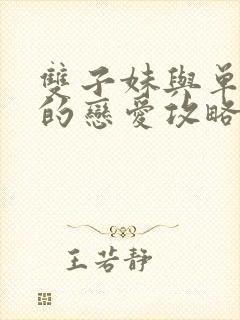 雙子妹與單
的戀愛攻略
王若靜